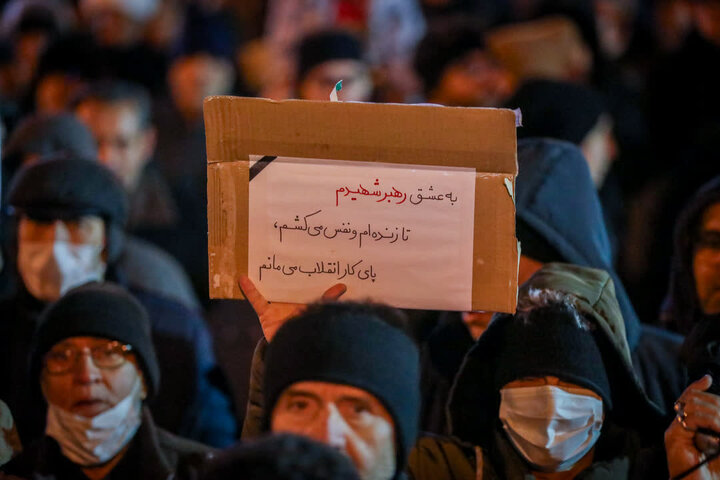 به عشق رهبر شهیدم
تا زنده‌ام و نفس می‌کشم،
پای کار انقلاب می‌مانم